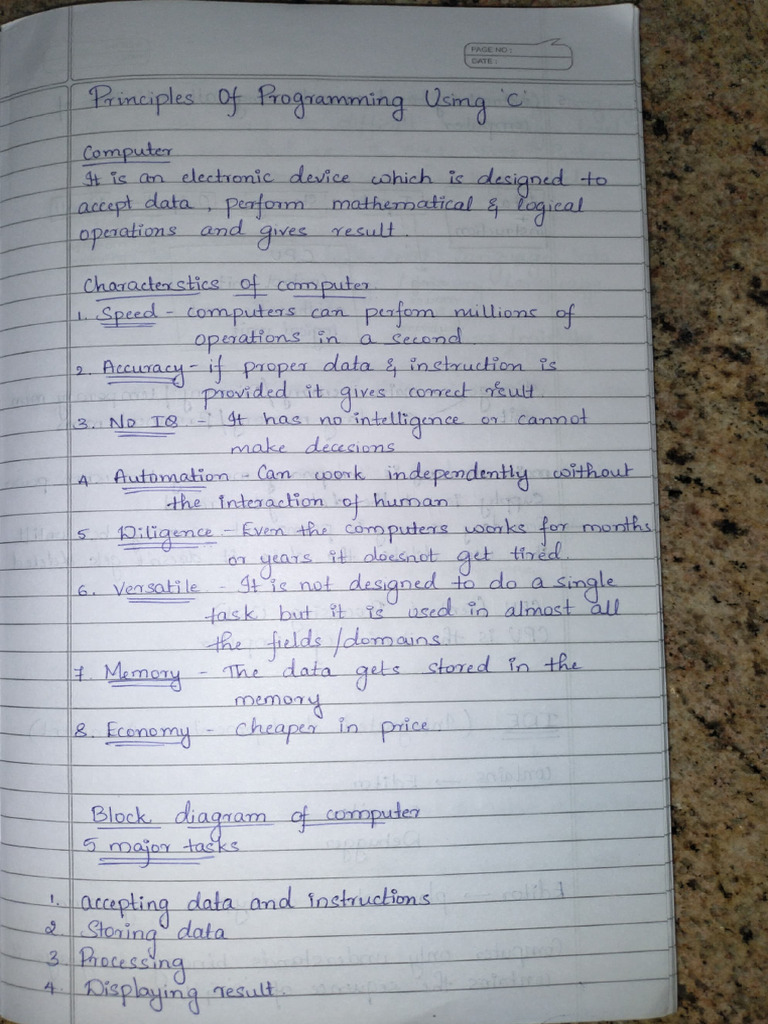 PAGE NO :
DATE :
Principles Of Programming Using 'C'
Computer
It is an electronic device which is designed to
accept data, perform mathematical & logical
operations and gives result.
Characterstics of computer
1. Speed - computers can perfom millions of
operations in a second.
2. Accuracy - if proper data & instruction is
provided it gives correct result.
3. No IQ - It has no intelligence or cannot
make decesions
4 Automation - Can work independently without
the interaction of human
5 Diligence - Even the computers works for months
or years it doesnot get tired.
6. Versatile - It is not designed to do a single
task but it is used in almost all
the fields/domains
7. Memory - The data gets stored in the
memory
8. Economy - Cheaper in price.
Block diagram of computer
5 major tasks
1. accepting data and instructions
2 Storing data
3. Processing
4. Displaying result.